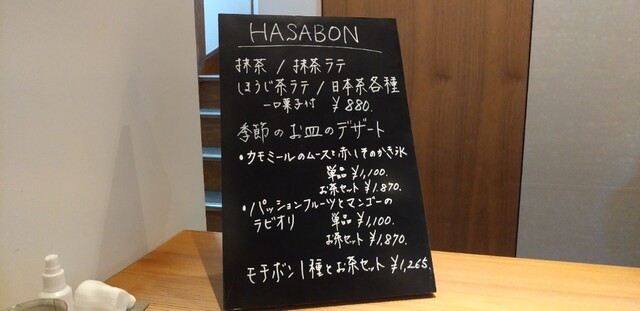 HASABON
抹茶 / 抹茶ラテ
ほうじ茶ラテ / 日本茶各種
一口菓子付 ¥880.
季節のお皿のデザート
・カモミールのムースと赤しそのかき氷
単品 ¥1,100.
お茶セット ¥1,870.
・パッションフルーツとマンゴーの
ラビオリ 単品 ¥1,100.
お茶セット ¥1,870.
モチボン1種とお茶セット ¥1,265.